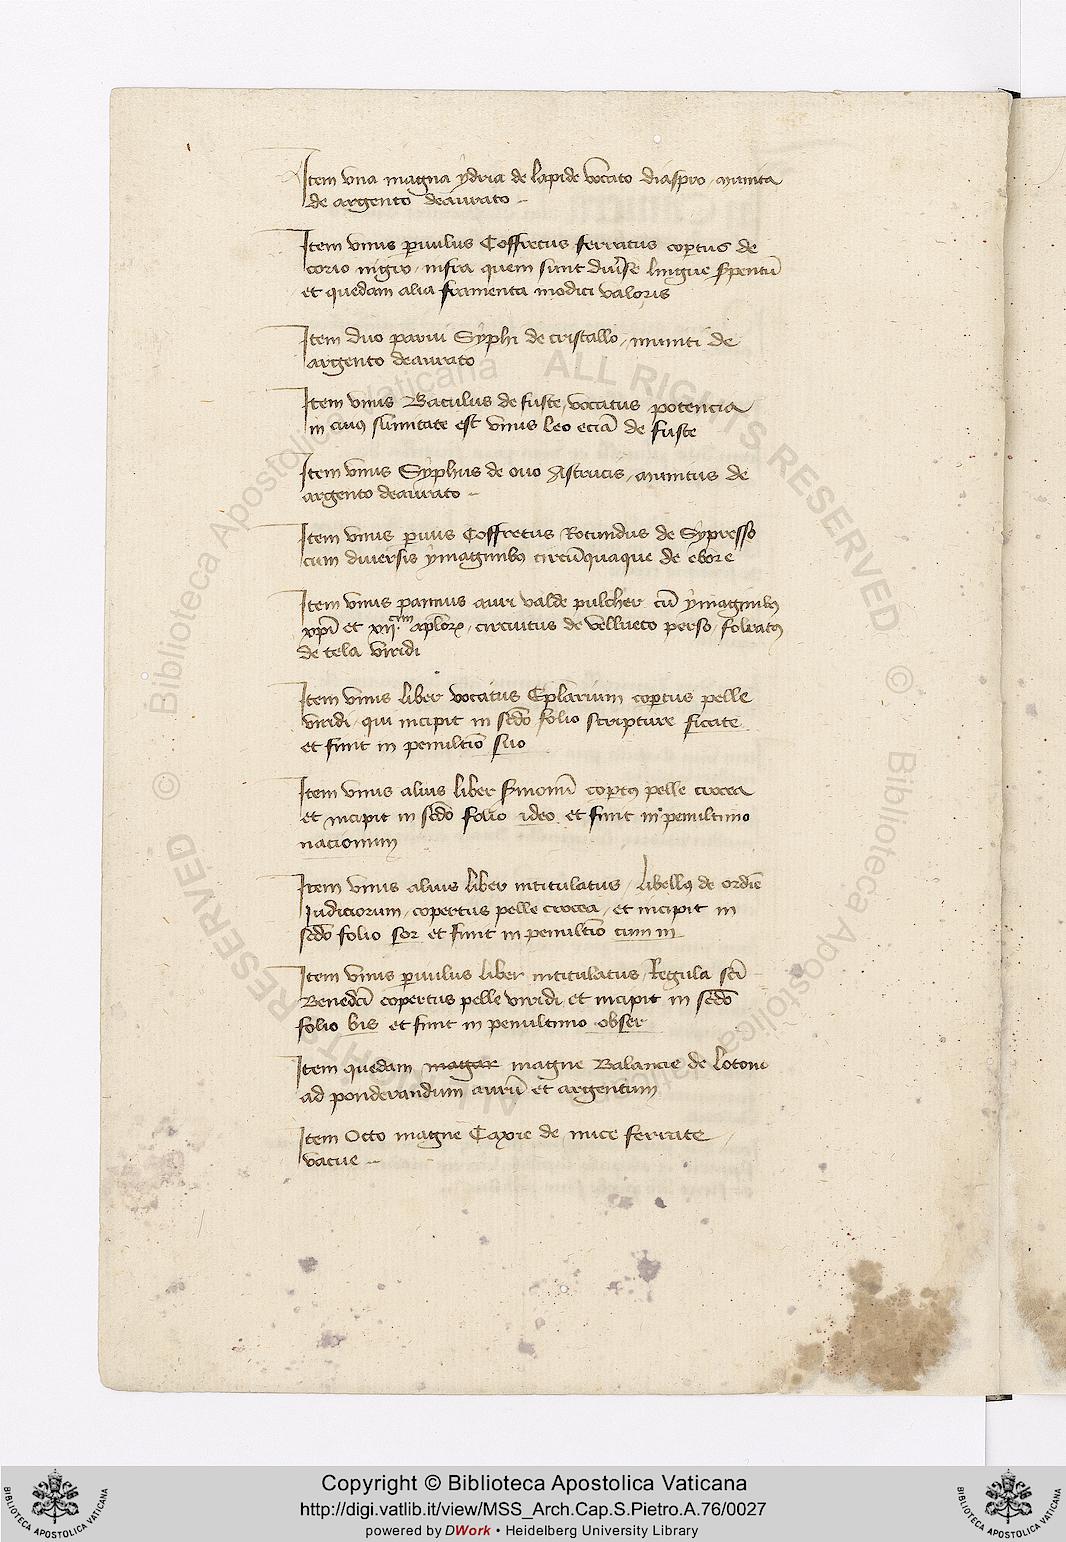 Item vna magna ydria de lapide vocato diaspro munita
de argento deaurato
Item vnus paruulus Coffretus ferratus copertus de
corio nigro infra quem sunt diuerse lingue serpentum
et quedam alia framenta modici valoris
Item duo parui Syphi de cristallo muniti de
argento deaurato
Item vnus Baculus de fuste vocatus potencia
in cuius summitate est vnus leo eciam de fuste
Item vnus Syphus de ouo Astrucis munitus de
argento deaurato
Item vnus paruus Coffretus Rotundus de Sypresso
cum diuersis ymaginibus circumquaque de ebore
Item vnus pannus auri valde pulcher cum ymaginibus
xpi et xii aplorum circuitus de vellueto perso foleratus
de tela viridi
Item vnus liber vocatus Eplarium copertus pelle
viridi qui incipit in sedo folio scripture ficate
et finit in penultimo suo
Item vnus alius liber sermonum copertus pelle crocea
et incipit in sedo folio ideo et finit in penultimo
nacionum
Item vnus alius liber intitulatus libellus de ordine
Judiciorum copertus pelle crocea et incipit in
sedo folio sor et finit in penultimo cum in
Item vnus paruulus liber intitulatus Regula sci
Benedci copertus pelle viridi et incipit in sedo
folio bis et finit in penultimo obser
Item quedam magne Balancie de lotone
ad ponderandum aurum et argentum
Item Octo magne Caxie de nuce ferrate
vacue
Copyright © Biblioteca Apostolica Vaticana
http://digi.vatlib.it/view/MSS_Arch.Cap.S.Pietro.A.76/0027
powered by DWork • Heidelberg University Library
BIBLIOTECA APOSTOLICA VATICANA
BIBLIOTECA APOSTOLICA VATICANA
© Biblioteca Apostolica Vaticana ALL RIGHTS RESERVED
© Biblioteca Apostolica Vaticana ALL RIGHTS RESERVED